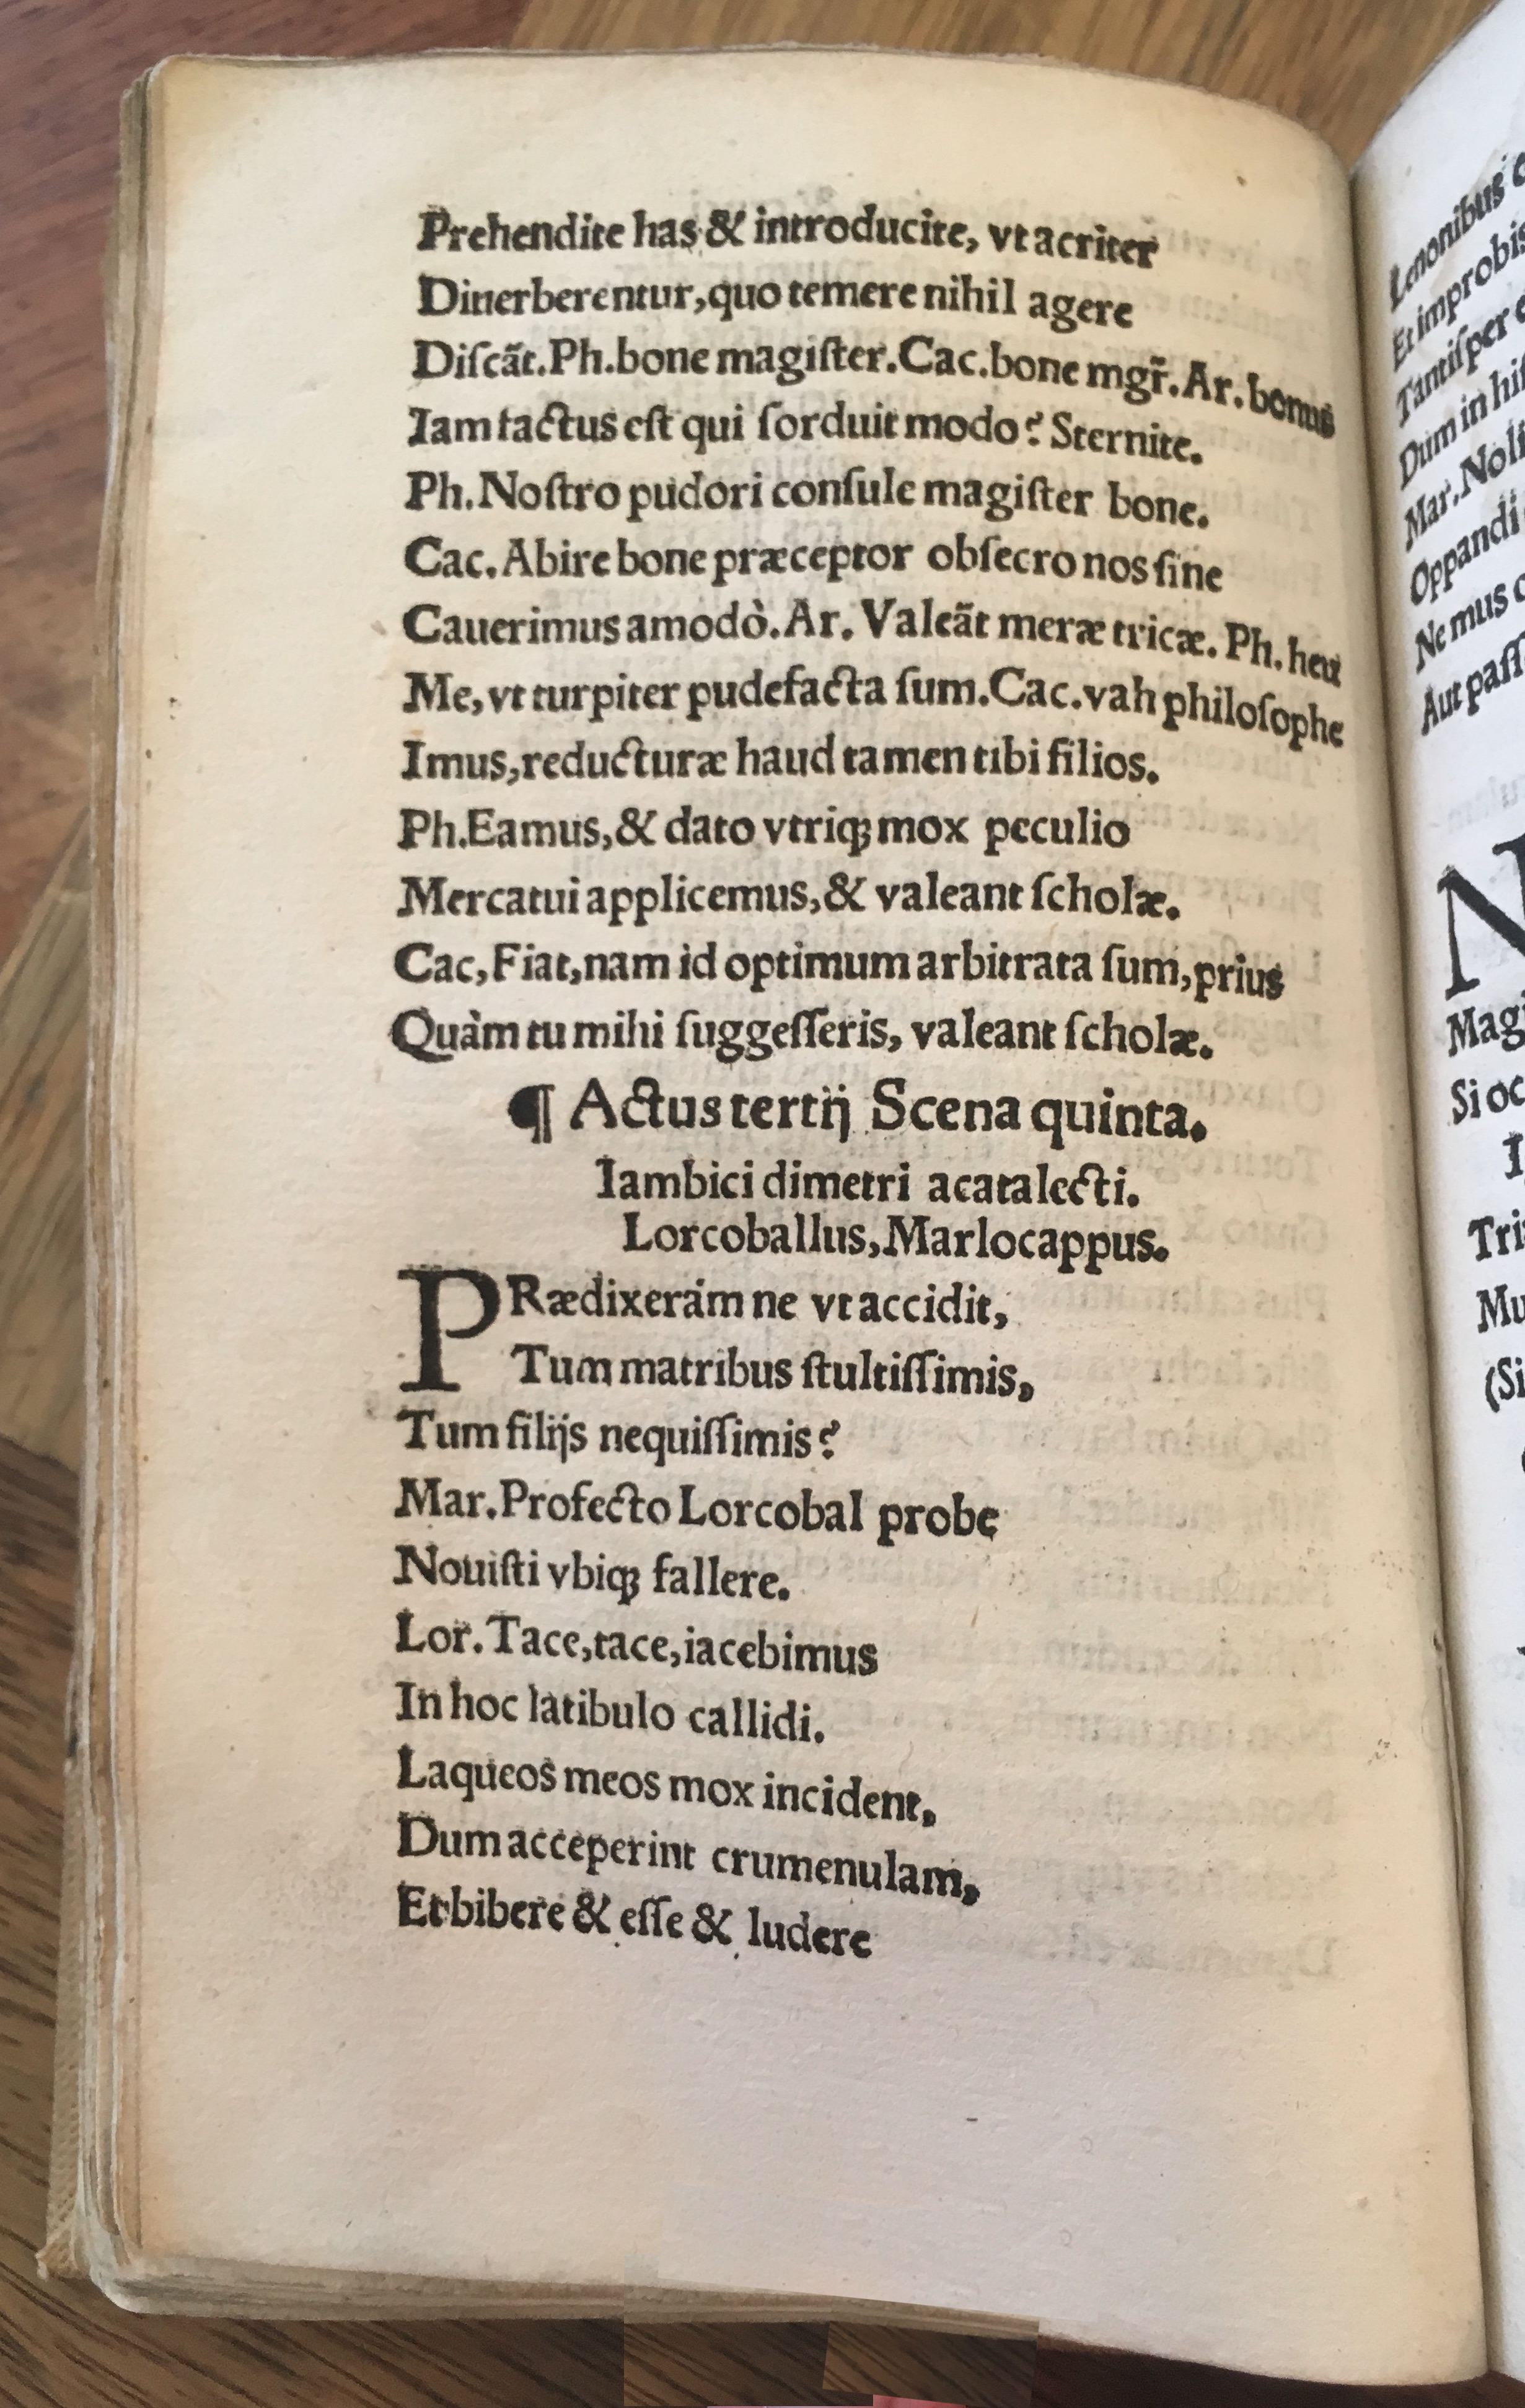 Prehendite has & introducite, vt acriter
Diuerberentur, quo temere nihil agere
Diſcãt. Ph. bone magiſter. Cac. bone mgr̃. Ar. bonus
Iam factus eſt qui ſorduit modo? Sternite.
Ph. Noſtro pudori conſule magiſter bone.
Cac. Abire bone præceptor obſecro nos ſine
Cauerimus amodò. Ar. Valeãt meræ tricæ. Ph. heu
Me, vt turpiter pudefacta ſum. Cac. vah philoſophe
Imus, reducturæ haud tamen tibi filios.
Ph. Eamus, & dato vtriqꝫ mox peculio
Mercatui applicemus, & valeant ſcholæ.
Cac, Fiat, nam id optimum arbitrata ſum, prius
Quàm tu mihi ſuggeſſeris, valeant ſcholæ.
¶ Actus tertij Scena quinta.
Iambici dimetri acatalecti.
Lorcoballus, Marlocappus.
PRædixerám ne vt accidit,
Tum matribus ſtultiſſimis,
Tum filijs nequiſſimis?
Mar. Profecto Lorcobal probe
Nouiſti vbiqꝫ fallere.
Lor. Tace, tace, iacebimus
In hoc latibulo callidi.
Laqueos meos mox incident,
Dum acceperint crumenulam,
Et bibere & eſſe & ludere
Lenonibus
Et improbis
Tantiſper
Dum in
Mar. Noli
Oppandi
Ne mus
Aut
N
Magi
Si oc
Tri
Mu
(Si